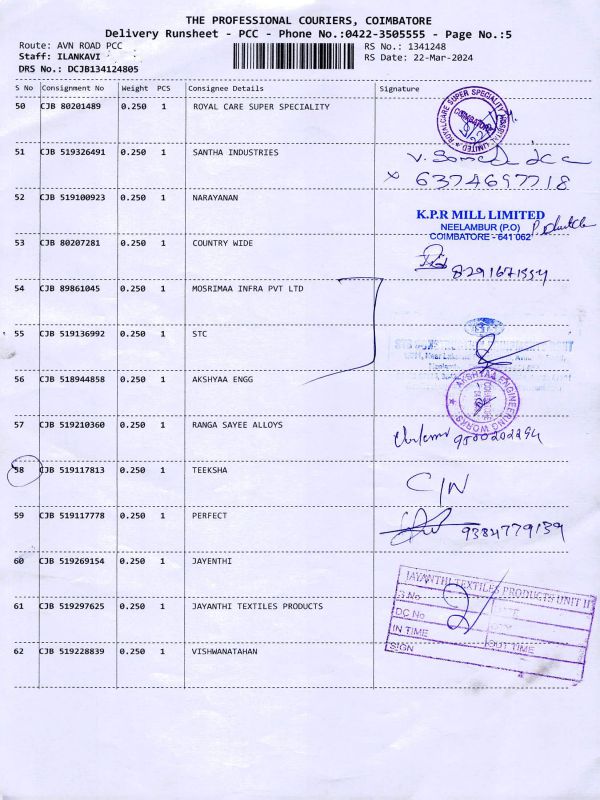 THE PROFESSIONAL COURIERS, COIMBATORE
Delivery Runsheet - PCC - Phone No.:0422-3505555 - Page No.:5
Route: AVN ROAD PCC
RS No.: 1341248
Staff: ILANKAVI
RS Date: 22-Mar-2024
DRS No.: DCJB134124805
S No Consignment No Weight PCS Consignee Details Signature
50 CJB 80201489 0.250 1 ROYAL CARE SUPER SPECIALITY
ROYALCARE SUPER SPECIALITY HOSPITAL LIMITED
COIMBATORE
51 CJB 519326491 0.250 1 SANTHA INDUSTRIES
6374697718
52 CJB 519100923 0.250 1 NARAYANAN
K.P.R MILL LIMITED
NEELAMBUR (P.O)
COIMBATORE - 641 062
53 CJB 80207281 0.250 1 COUNTRY WIDE
8291671554
54 CJB 89861045 0.250 1 MOSRIMAA INFRA PVT LTD
55 CJB 519136992 0.250 1 STC
56 CJB 518944858 0.250 1 AKSHYAA ENGG
AKSHYAA ENGINEERING WORKS
57 CJB 519210360 0.250 1 RANGA SAYEE ALLOYS
58 CJB 519117813 0.250 1 TEEKSHA
C/N
59 CJB 519117778 0.250 1 PERFECT
9384779139
60 CJB 519269154 0.250 1 JAYENTHI
JAYANTHI TEXTILES PRODUCTS UNIT II
S.No.
DATE
61 CJB 519297625 0.250 1 JAYANTHI TEXTILES PRODUCTS
DC No
IN TIME
OUT TIME
SIGN
62 CJB 519228839 0.250 1 VISHWANATAHAN